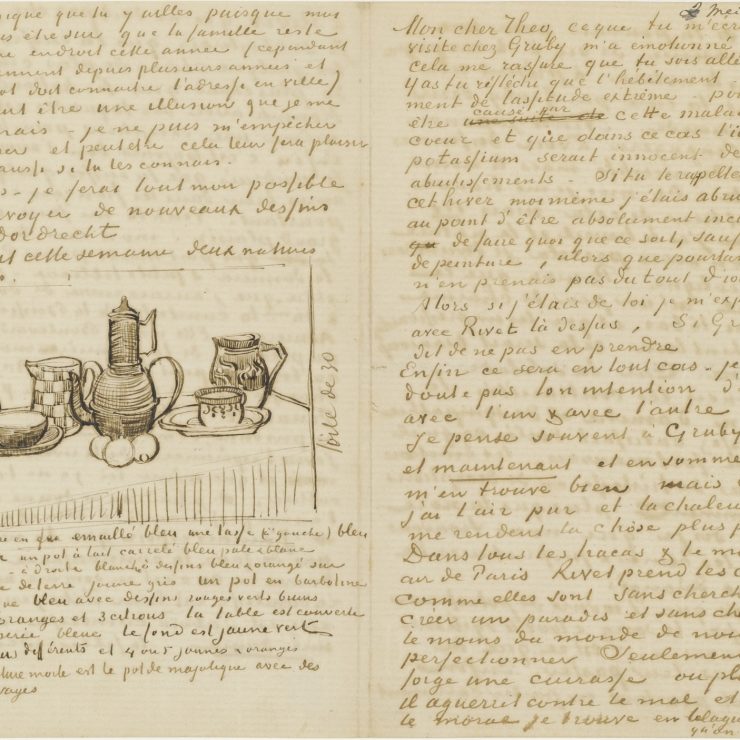 que tu y ailles puisque nous
être sur que la famille reste
endroit cette année (cependant
depuis plusieurs années et
doit connaître l'adresse en ville)
être une illusion que je me
mais je ne puis m'empêcher
et peut être cela leur fera plaisir
si tu les connais.
je ferai tout mon possible
de nouveaux dessins
Dordrecht
cette semaine deux natures
toile de 30
en fer emaillé bleu une tasse (à gauche) bleu
un pot à lait carrelé bleu pale & blanc
à droite blanche à dessins bleus & orangé sur
de terre jaune gris un pot en barbotine
bleu avec dessins rouges verts bruns
oranges et 3 citrons la table est couverte
bleue le fond est jaune vert
différents et 4 ou 5 jaunes & oranges
morte est le pot de majolique avec des
2 Mei
Mon cher Theo, ce que tu m'écr
visite chez Gruby m'a émotionné
cela me rassure que tu sois allé
Y as tu réfléchi que l'hébètement
ment de lassitude extrême
être causé par cette malad
coeur et que dans ce cas l'i
potassium serait innocent de
abrutissements. Si tu te rappelle
cet hiver moi même j'étais abru
au point d'être absolument inca
de faire quoi que ce soit, sauf
de peinture, alors que pourtan
n'en prenais pas du tout d'io
Alors si j'étais de toi je m'ex
avec Rivet là dessus, Si Gr
dit de ne pas en prendre
Enfin ce sera en tout cas - je
doute pas ton intention d'
avec l'un & avec l'autre
Je pense souvent à Gruby
et maintenant et en somme
m'en trouve bien mais
j'ai l'air pur et la chaleu
me rendent la chose plus p
Dans tous les tracas & le m
air de Paris Rivet prend les c
comme elles sont sans cherch
créer un paradis et sans che
le moins du monde de nou
perfectionner Seulement
forge une cuirasse ou pl
il aguerrit contre le mal et
le moral je trouve en blagu
qu'on